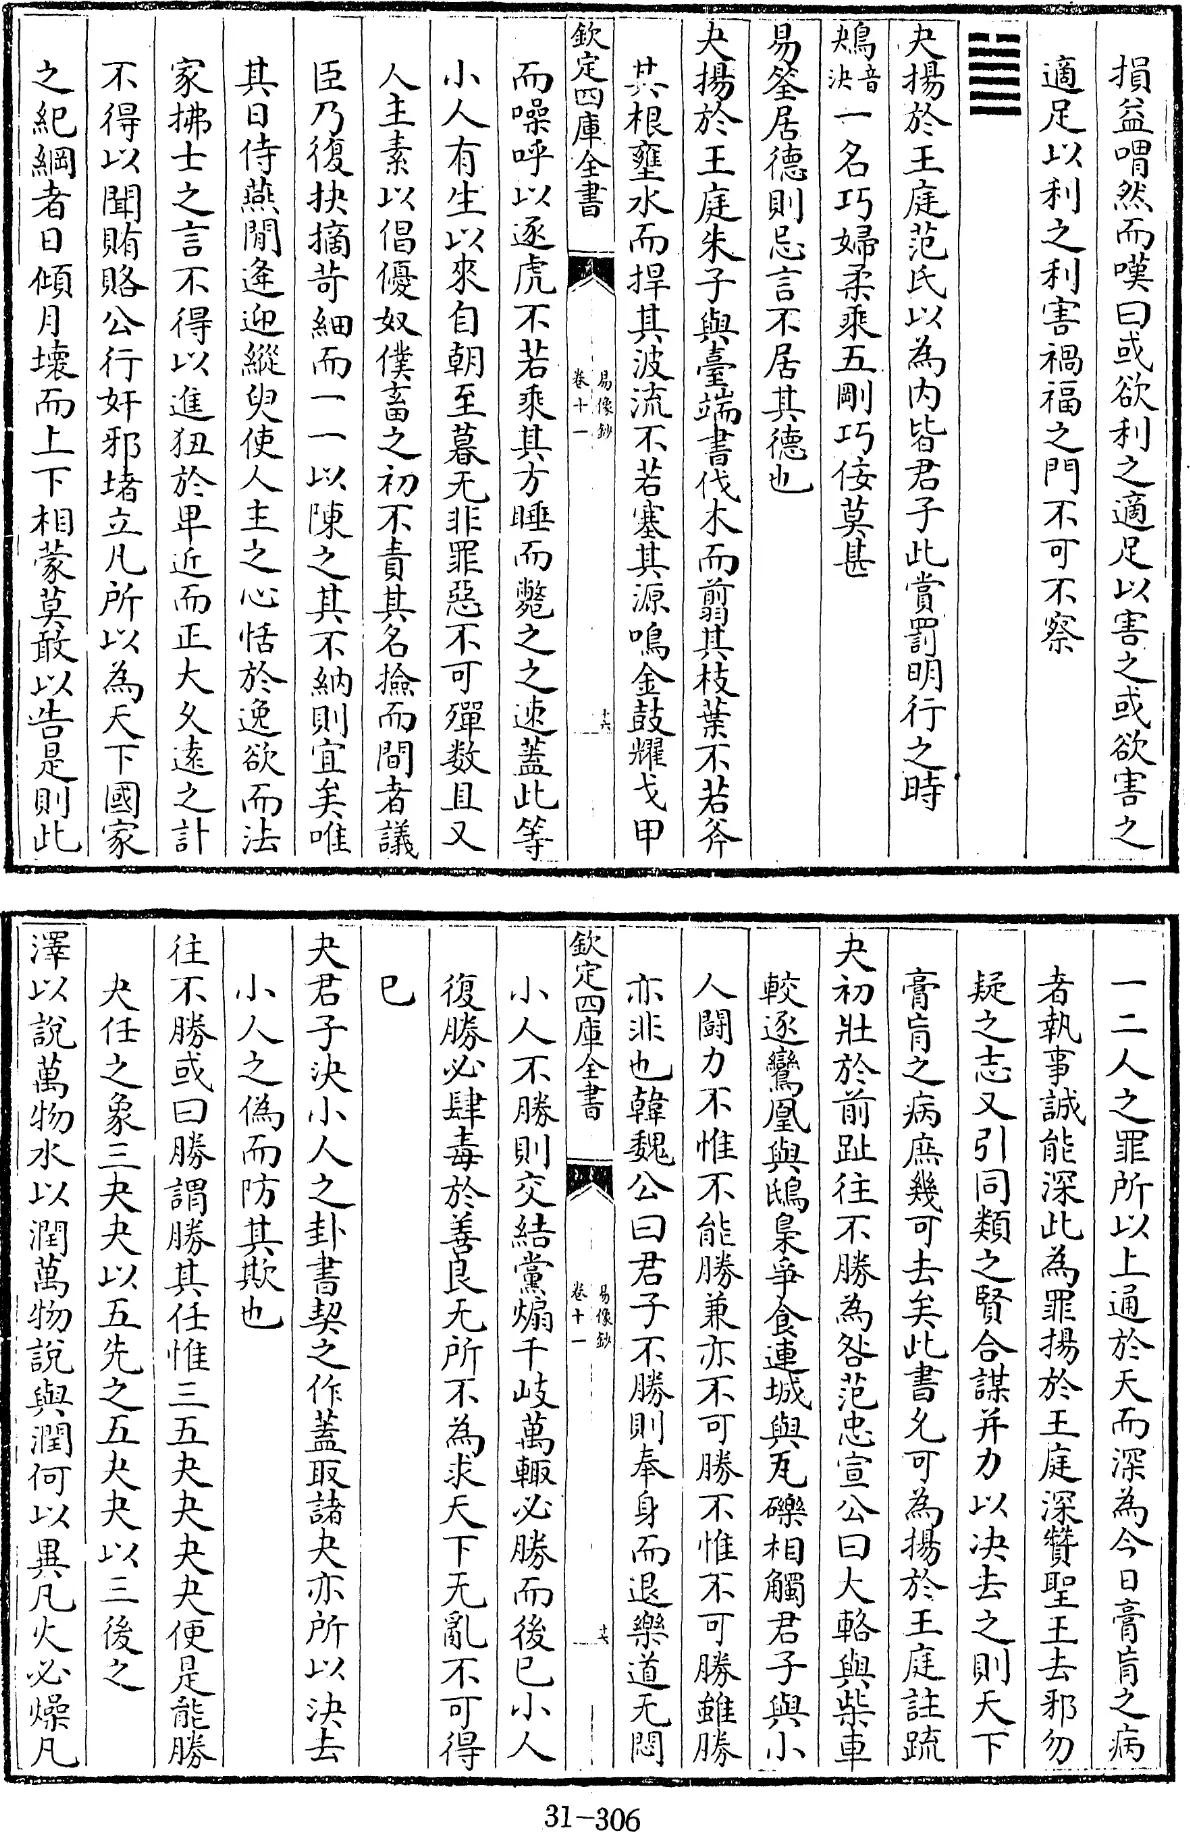 損益喟然而嘆曰或欲利之適足以害之或欲害之
適足以利之利害禍福之門不可不察
䷪
夬揚於王庭范氏以為内皆君子此賞罰明行之時
鴂音決一名巧婦柔乘五剛巧佞莫甚
易筌居德則忌言不居其德也
夬揚於王庭朱子與臺端書伐木而翦其枝葉不若斧
其根壅水而捍其波流不若塞其源鳴金鼓耀戈甲
欽定四庫全書
易像鈔
卷十一
十六
而噪呼以逐虎不若乘其方睡而斃之之速蓋此等
小人有生以來自朝至暮无非罪惡不可殫数且又
人主素以倡優奴僕畜之初不責其名撿而間者議
臣乃復抉摘苛細而一一以陳之其不納則宜矣唯
其日侍燕閒逢迎縱臾使人主之心恬於逸欲而法
家拂士之言不得以進狃於卑近而正大久遠之計
不得以聞賄賂公行奸邪堵立凡所以為天下國家
之紀綱者日傾月壞而上下相蒙莫敢以告是則此
一二人之罪所以上通於天而深為今日膏肓之病
者執事誠能深此為罪揚於王庭深贊聖王去邪勿
疑之志又引同類之賢合謀并力以决去之則天下
膏肓之病庶幾可去矣此書允可為揚於王庭註疏
夬初壯於前趾往不勝為咎范忠宣公曰大輅與柴車
較逐鸞凰與鴟梟爭食連城與瓦礫相觸君子與小
人鬪力不惟不能勝兼亦不可勝不惟不可勝雖勝
亦非也韓魏公曰君子不勝則奉身而退樂道无悶
欽定四庫全書
易像鈔
卷十一
十六
小人不勝則交結黨煽千岐萬轍必勝而後已小人
復勝必肆毒於善良无所不為求天下无亂不可得
已
夬君子決小人之卦書契之作蓋取諸夬亦所以決去
小人之偽而防其欺也
往不勝或曰勝謂勝其任惟三五夬夬夬夬便是能勝
夬任之象三夬夬以五先之五夬夬以三後之
澤以說萬物水以潤萬物說與潤何以異凡火必燥凡
31-306